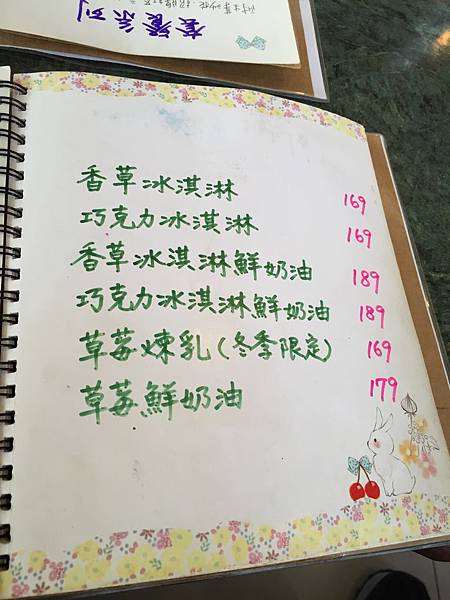 套餐系列
香草冰淇淋 169
巧克力冰淇淋 169
香草冰淇淋鮮奶油 189
巧克力冰淇淋鮮奶油 189
草莓煉乳(冬季限定) 169
草莓鮮奶油 179